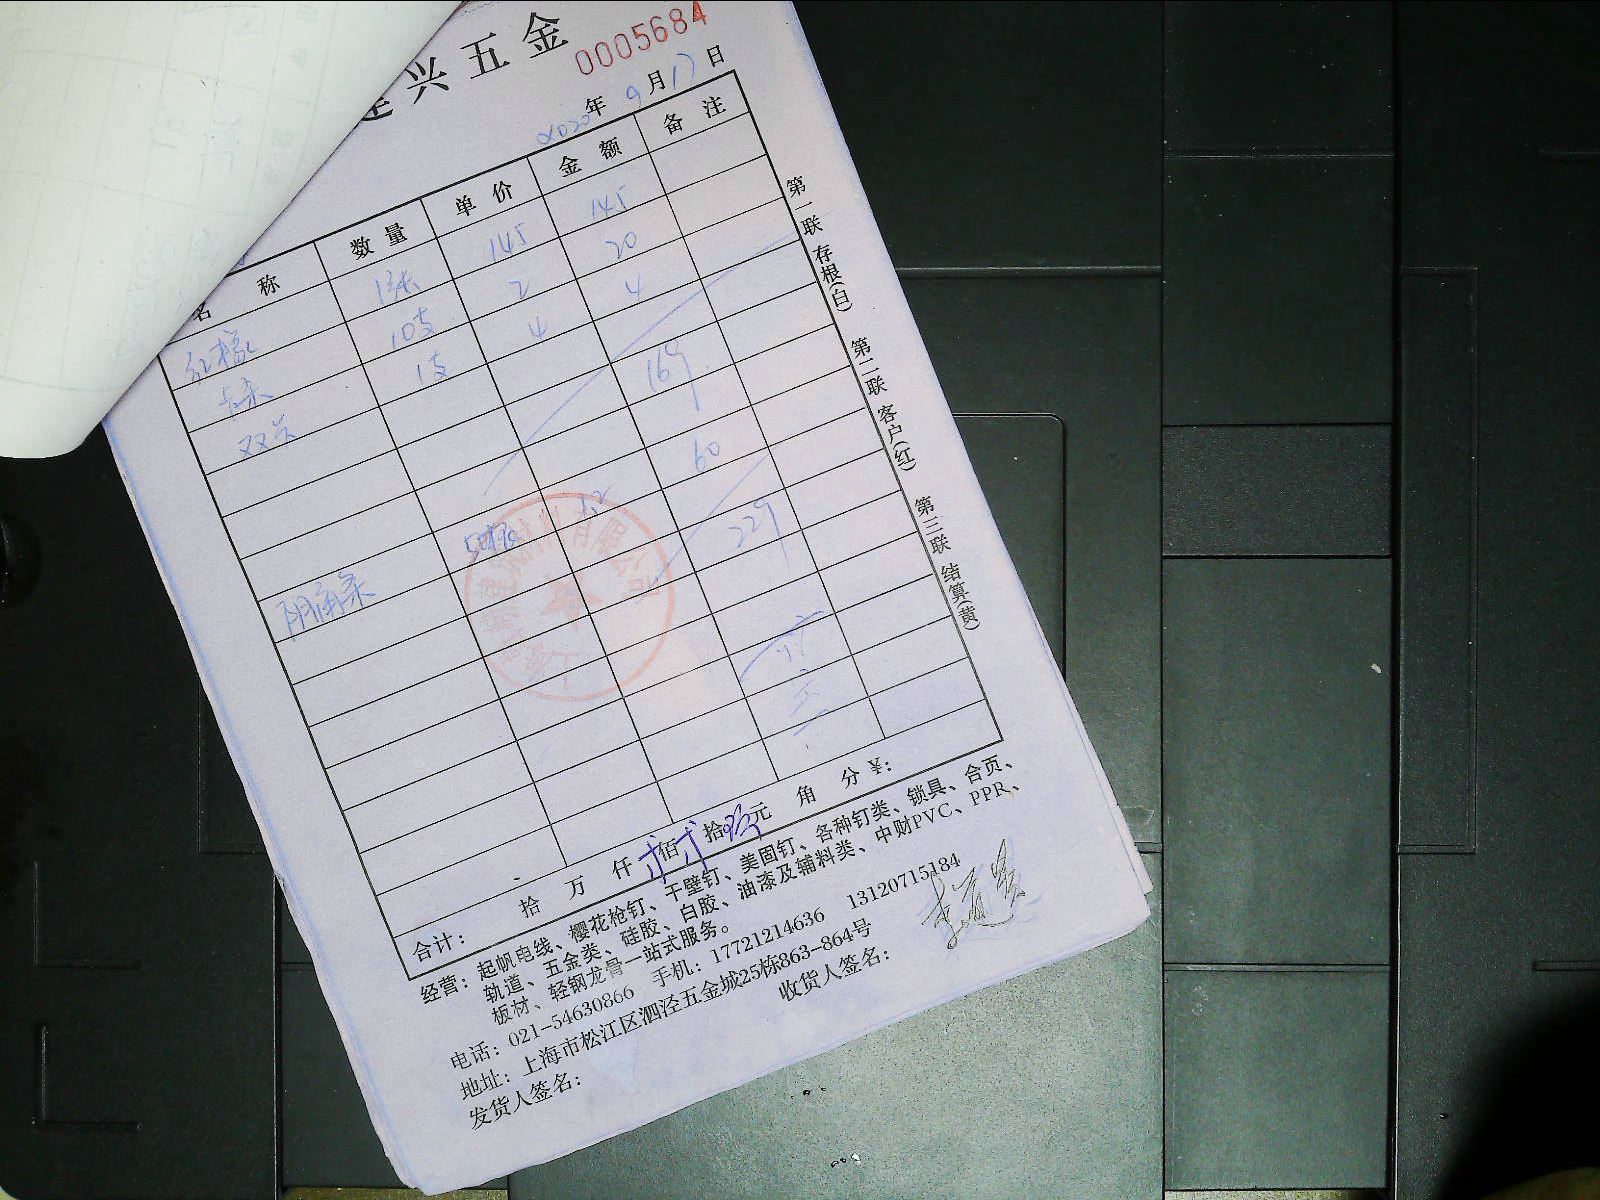 兴五金
0005684
2020年9月17日
名 称 数量 单价 金额 备注
红橡 1张 145 145
10支 2 20
双 1支 4 4
169
阴角条 50根 1.2 60
229
合计: 拾 万 仟 贰佰贰拾玖元 角 分 ¥:
第一联 存根(白) 第二联 客户(红) 第三联 结算(黄)
经营: 起帆电线、樱花枪钉、干壁钉、美固钉、各种钉类、锁具、合页、
轨道、五金类、硅胶、白胶、油漆及辅料类、中财PVC、PPR、
板材、轻钢龙骨一站式服务。
电话: 021-54630866 手机: 17721214636 13120715184
地址: 上海市松江区泗泾五金城25栋863-864号
发货人签名: 收货人签名: